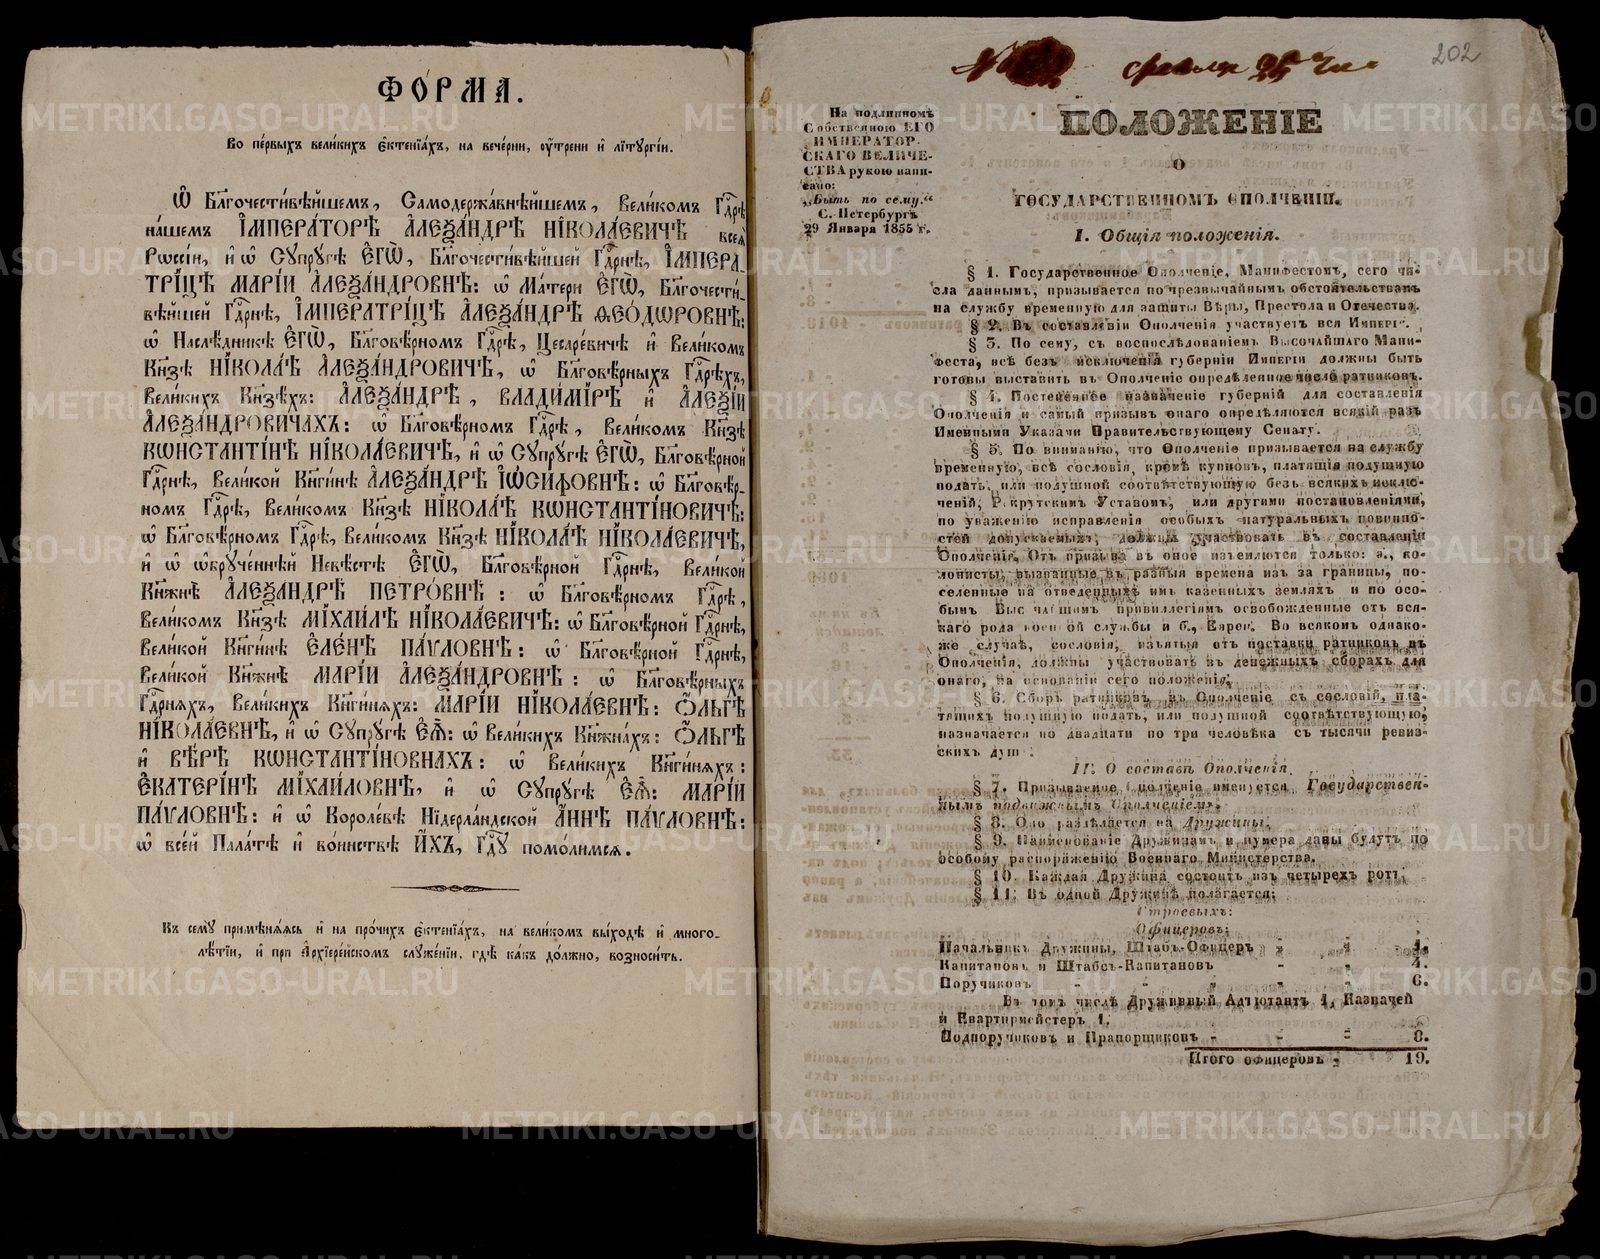 ФО́РМА.
Во пе́рвыхъ вели́кихъ є҆ктенїа́хъ, на вече́рни, оу҆́трени и҆ лїтꙋргі́и.
Ѡ҆ Бл҃гочести́вѣйшемъ, Самодержа́внѣйшемъ, Вели́комъ Гдⷭ҇рѣ
на́шемъ І҆МПЕРА́ТОРѢ А҆ЛЕѮА́НДРѢ НІКОЛА́ЕВИЧѢ всеѧ̀
Рѡссі́и, и҆ ѡ҆ Сꙋпрꙋ́гѣ Є҆ГѠ̀, Бл҃гочести́вѣйшей Гдⷭ҇рнѣ, І҆МПЕРА-
ТРІ́ЦѢ МАРІ́И А҆ЛЕѮА́НДРОВНѢ: ѡ҆ Ма́тери Є҆ГѠ̀, Бл҃гочести́-
вѣйшей Гдⷭ҇рнѣ, І҆МПЕРАТРІ́ЦѢ А҆ЛЕѮА́НДРѢ ѲЕО́ДѠРОВНѢ:
ѡ҆ Наслѣ́дникѣ Є҆ГѠ̀, Бл҃говѣ́рномъ Гдⷭ҇рѣ, Цесаре́вичѣ и҆ Вели́комъ
Кн҃зѣ НІКОЛА́Ѣ А҆ЛЕѮА́НДРОВИЧѢ, ѡ҆ Бл҃говѣ́рныхъ Гдⷭ҇рѣхъ,
Вели́кихъ Кн҃зѣхъ: А҆ЛЕѮА́НДРѢ, ВЛАДИ́МІРѢ и҆ А҆ЛЕѮІ́И
А҆ЛЕѮА́НДРОВИЧАХЪ: ѡ҆ Бл҃говѣ́рномъ Гдⷭ҇рѣ, Вели́комъ Кн҃зѣ
КѠНСТАНТІ́НѢ НІКОЛА́ЕВИЧѢ, и҆ ѡ҆ Сꙋпрꙋ́гѣ Є҆ГѠ̀, Бл҃говѣ́рной
Гдⷭ҇рнѣ, Вели́кой Кн҃ги́нѣ А҆ЛЕѮА́НДРѢ І҆Ѡ́СИФОВНѢ: ѡ҆ Бл҃говѣ́р-
номъ Гдⷭ҇рѣ, Вели́комъ Кн҃зѣ НІКОЛА́Ѣ КѠНСТАНТІ́НОВИЧѢ:
ѡ҆ Бл҃говѣ́рномъ Гдⷭ҇рѣ, Вели́комъ Кн҃зѣ НІКОЛА́Ѣ НІКОЛА́ЕВИЧѢ,
и҆ ѡ҆ ѡ҆брꙋче́ннѣй Невѣ́стѣ Є҆ГѠ̀, Бл҃говѣ́рной Гдⷭ҇рнѣ, Вели́кой
Кн҃жнѣ̀ А҆ЛЕѮА́НДРѢ ПЕТРО́ВНѢ: ѡ҆ Бл҃говѣ́рномъ Гдⷭ҇рѣ,
Вели́комъ Кн҃зѣ МІХАИ́ЛѢ НІКОЛА́ЕВИЧѢ: ѡ҆ Бл҃говѣ́рной Гдⷭ҇рнѣ,
Вели́кой Кн҃ги́нѣ Є҆ЛЕ́НѢ ПА́ѴЛОВНѢ: ѡ҆ Бл҃говѣ́рной Гдⷭ҇рнѣ,
Вели́кой Кн҃жнѣ̀ МАРІ́И А҆ЛЕѮА́НДРОВНѢ: ѡ҆ Бл҃говѣ́рныхъ
Гдⷭ҇рнѧхъ, Вели́кихъ Кн҃ги́нѧхъ: МАРІ́И НІКОЛА́ЕВНѢ: Ѻ҆́ЛЬГѢ
НІКОЛА́ЕВНѢ, и҆ ѡ҆ Сꙋпрꙋ́гѣ Є҆Ѧ̀: ѡ҆ Вели́кихъ Кн҃жна́хъ: Ѻ҆́ЛЬГѢ
и҆ ВѢ́РѢ КѠНСТАНТІ́НОВНАХЪ: ѡ҆ Вели́кихъ Кн҃ги́нѧхъ:
Є҆КАТЕРІ́НѢ МІХАИ́ЛОВНѢ, и҆ ѡ҆ Сꙋпрꙋ́гѣ Є҆Ѧ̀: МАРІ́И
ПА́ѴЛОВНѢ: и҆ ѡ҆ Короле́вѣ Нїдерла́ндской А҆́ННѢ ПА́ѴЛОВНѢ:
ѡ҆ все́й Пала́тѣ и҆ во́инствѣ И҆́ХЪ, Гдⷭ҇ꙋ помо́лимсѧ.
Къ семꙋ̀ примѣнѧ́ѧсь и҆ на про́чихъ є҆ктенїа́хъ, на вели́комъ вы́ходѣ и҆ много-
лѣ́тїи, и҆ при А҆рхїере́йскомъ слꙋже́нїи, гдѣ̀ ка́къ до́лжно, возноси́ть.
202
На подлинномъ
Собственною ЕГО
ИМПЕРАТОР-
СКАГО ВЕЛИЧЕ-
СТВА рукою напи-
сано:
„Быть по сему.“
С. Петербургъ
29 Января 1855 г.
ПОЛОЖЕНІЕ
О
ГОСУДАРСТВЕННОМЪ ОПОЛЧЕНІИ.
I. Общія положенія.
§ 1. Государственное Ополченіе, Манифестомъ, сего чи-
сла даннымъ, призывается по чрезвычайнымъ обстоятельствамъ
на службу временную для защиты Вѣры, Престола и Отечества.
§ 2. Въ составленіи Ополченія участвуетъ вся Имперія.
§ 3. По сему, съ воспослѣдованіемъ Высочайшаго Мани-
феста, всѣ безъ исключенія губерніи Имперіи должны быть
готовы выставить въ Ополченіе опредѣленное число ратниковъ.
§ 4. Постепенное назначеніе губерній для составленія
Ополченія и самый призывъ онаго опредѣляются всякій разъ
Именными Указами Правительствующему Сенату.
§ 5. По вниманію, что Ополченіе призывается на службу
временную, всѣ сословія, кромѣ купцовъ, платящія подушную
подать, или подушной соотвѣтствующую безъ всякихъ исклю-
ченій, Рекрутскимъ Уставомъ, или другими постановленіями,
по уваженію исправленія особыхъ натуральныхъ повинно-
стей допускаемыхъ, должны участвовать въ составленіи
Ополченія. Отъ призыва въ оное изъемлются только: а., ко-
лонисты, вызванные въ разныя времена изъ за границы, по-
селенные на отведенныхъ имъ казенныхъ земляхъ и по осо-
бымъ Высочайшимъ привиллегіямъ освобожденные отъ вся-
каго рода военной службы и б., Евреи. Во всякомъ однако-
же случаѣ, сословія, изъятыя отъ поставки ратниковъ въ
Ополченія, должны участвовать въ денежныхъ сборахъ для
онаго, на основаніи сего положенія.
§ 6. Сборъ ратниковъ въ Ополченіе съ сословій, пла-
тящихъ подушную подать, или подушной соотвѣтствующую,
назначается по двадцати по три человѣка съ тысячи ревиз-
скихъ душъ.
II. О составѣ Ополченія.
§ 7. Призываемое Ополченіе именуется Государствен-
нымъ подвижнымъ Ополченіемъ.
§ 8. Оно раздѣляется на Дружины.
§ 9. Наименованіе Дружинамъ и нумера даны будутъ по
особому распоряженію Военнаго Министерства.
§ 10. Каждая Дружина состоитъ изъ четырехъ ротъ.
§ 11. Въ одной Дружинѣ полагается:
Строевыхъ:
Офицеровъ:
Начальникъ Дружины, Штабъ-Офицеръ - - 1.
Капитановъ и Штабсъ-Капитановъ - - 4.
Поручиковъ - - - - - 6.
Въ томъ числѣ Дружинный Адъютантъ 1, Казначей
и Квартирмейстеръ 1.
Подпоручиковъ и Прапорщиковъ - - - 8.
Итого офицеровъ - 19.
METRIKI.GASO-URAL.RU